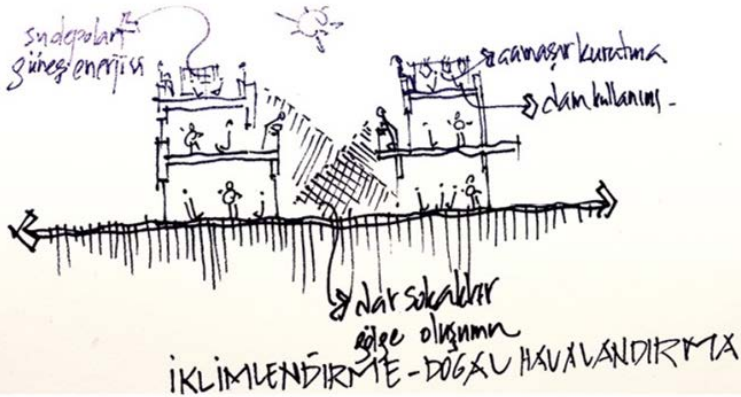 su depoları
güneş enerjisi
çamaşır kurutma
dam kullanımı
dar sokaklar
gölge oluşumu
İKLİMLENDİRME-DOĞAL HAVALANDIRMA